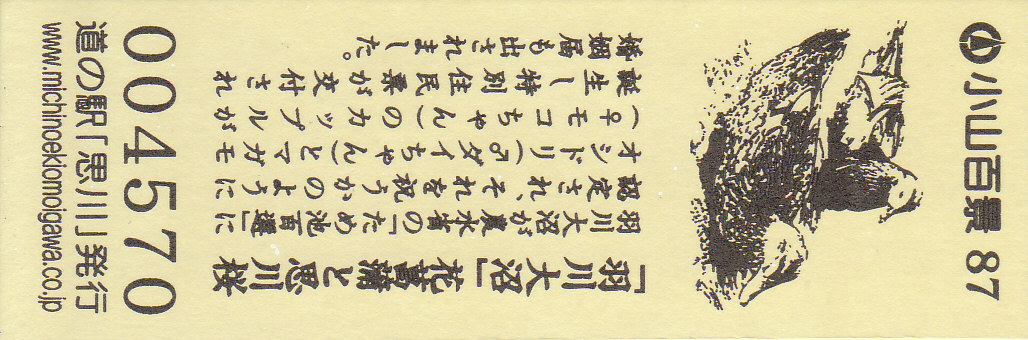 小山百景 87
「羽川大沼」花菖蒲と思川桜
羽川大沼が農水省の「ため池百選」に
認定され、それを祝うかのように
オシドリ(♂ダイちゃん)とマガモ
(♀モコちゃん)のカップルが
誕生し特別住民票が交付され
婚姻届も出されました。
004570
道の駅「思川」発行
www.michinoekiomoigawa.co.jp